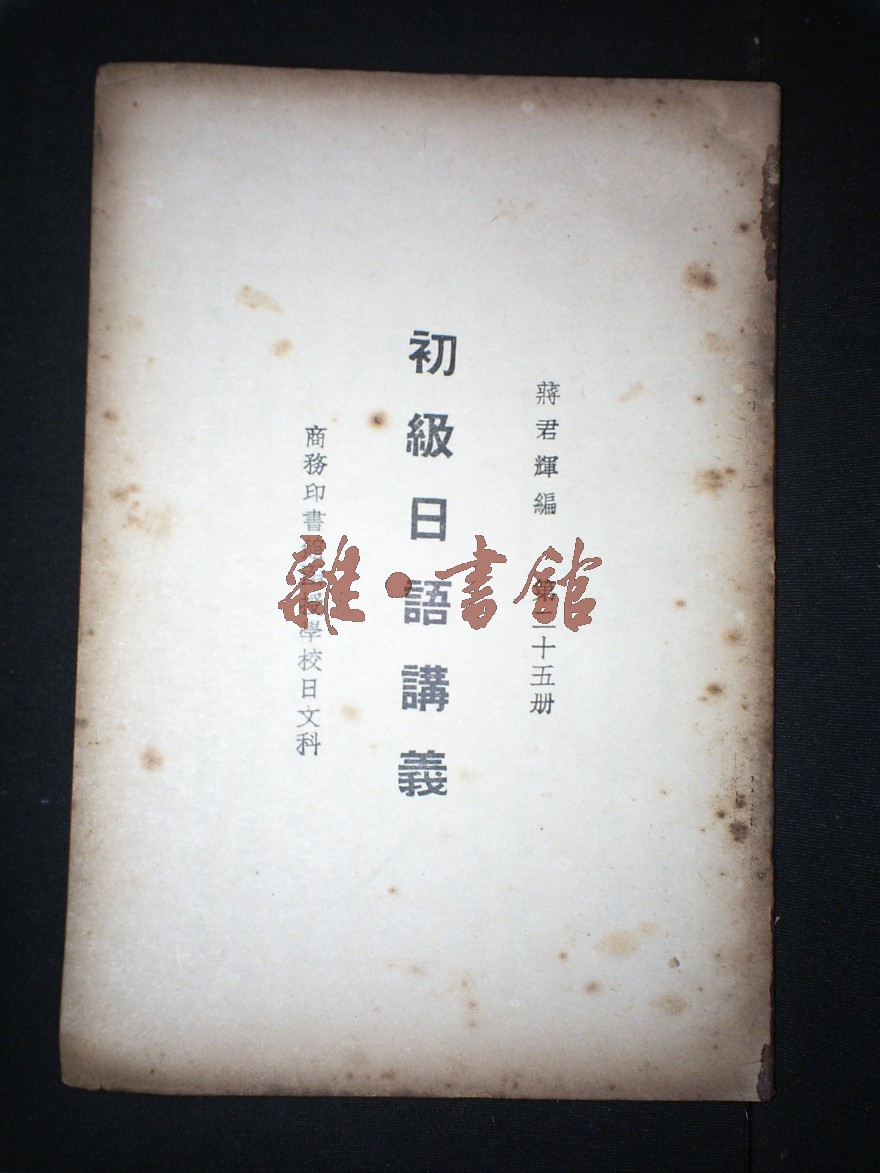 蔣君輝編 第二十五册
初級日語講義
商務印書館函授學校日文科
雜·書館